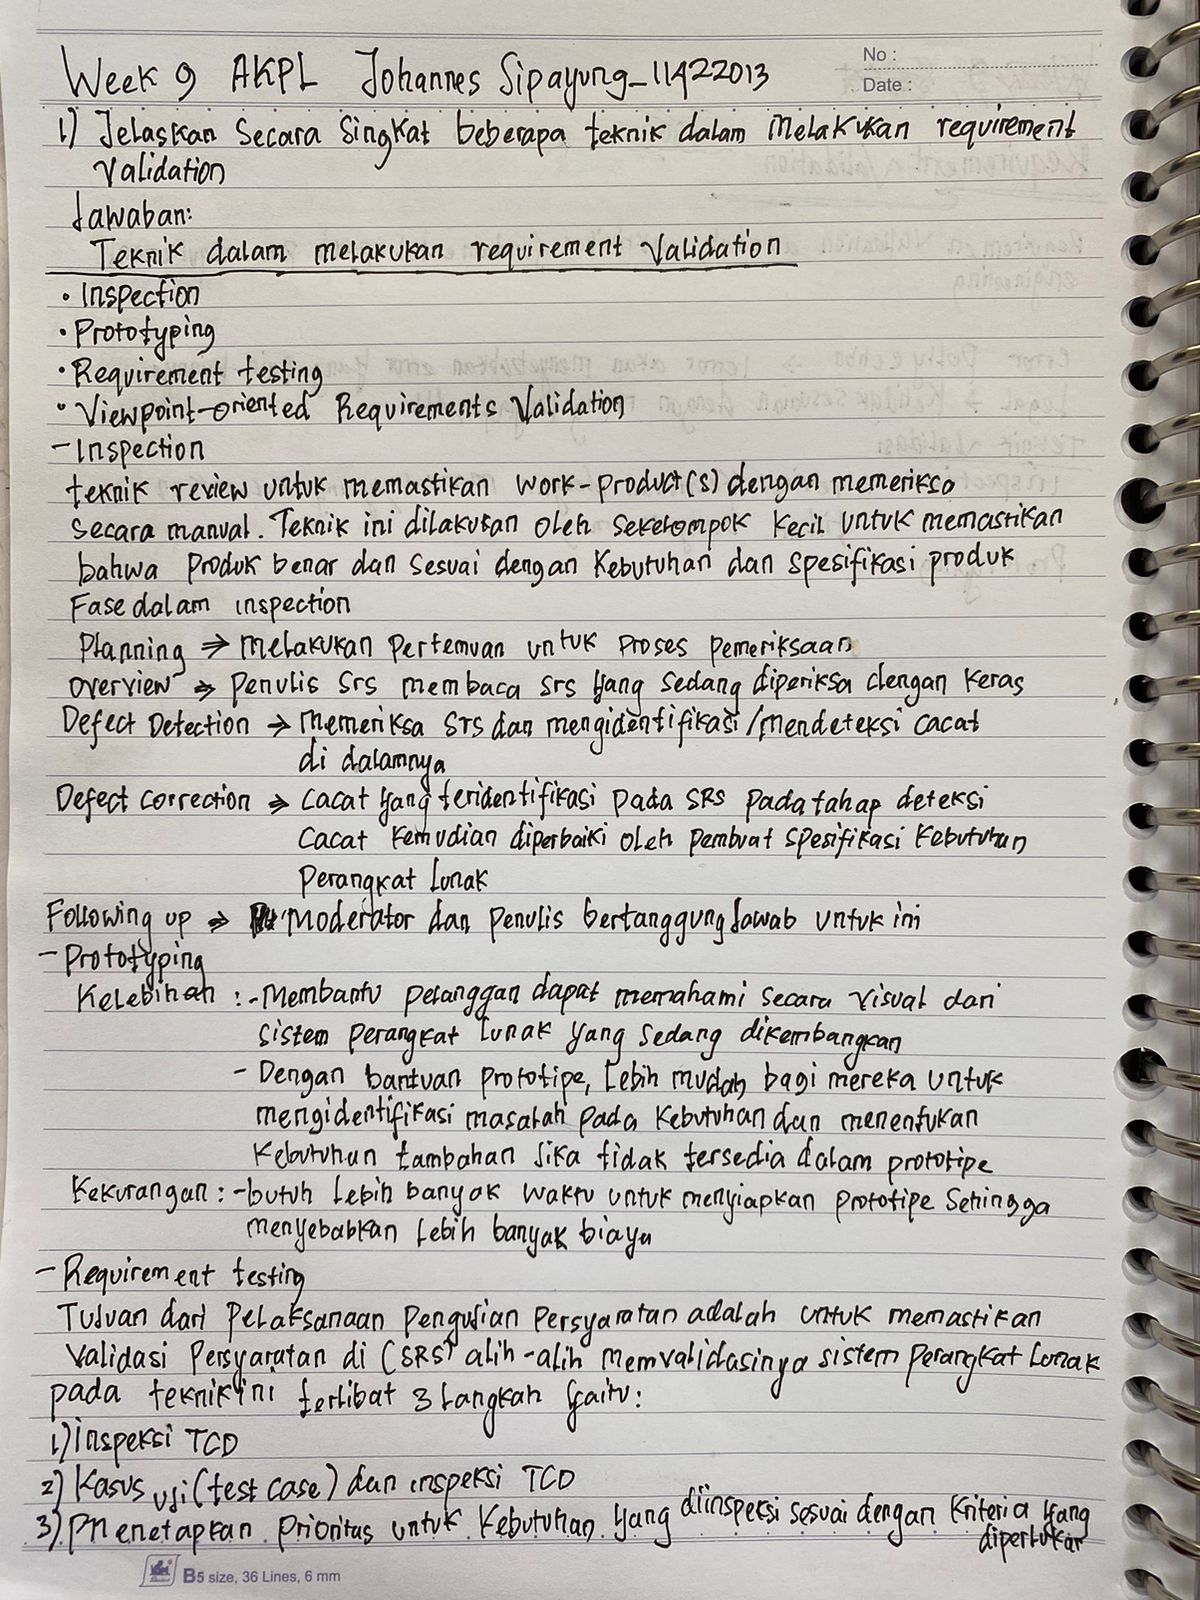 Week 9 AKPL Johannes Sipayung_11422013
No :
Date :
1) Jelaskan Secara Singkat beberapa teknik dalam melakukan requirement
validation
Jawaban:
Teknik dalam melakukan requirement validation
• Inspection
• Prototyping
• Requirement testing
• Viewpoint-oriented Requirements Validation
- Inspection
teknik review untuk memastikan work-product(s) dengan memeriksa
secara manual. Teknik ini dilakukan oleh sekelompok kecil untuk memastikan
bahwa produk benar dan sesuai dengan kebutuhan dan spesifikasi produk
Fase dalam inspection
Planning => melakukan pertemuan untuk proses pemeriksaan
overview => penulis srs membaca srs yang sedang diperiksa dengan keras
Defect Detection → memeriksa srs dan mengidentifikasi/mendeteksi cacat
di dalamnya
Defect correction => cacat yang teridentifikasi pada SRS pada tahap deteksi
cacat kemudian diperbaiki oleh pembuat spesifikasi kebutuhan
perangkat lunak
Following up => moderator dan penulis bertanggung Jawab untuk ini
- Prototyping
Kelebihan : - Membantu pelanggan dapat memahami secara visual dari
sistem perangkat lunak yang sedang dikembangkan
- Dengan bantuan prototipe, lebih mudah bagi mereka untuk
mengidentifikasi masalah pada kebutuhan dan menentukan
Kebutuhan tambahan Jika tidak tersedia dalam prototipe
Kekurangan : - butuh lebih banyak waktu untuk menyiapkan prototipe Sehingga
menyebabkan lebih banyak biaya
- Requirement testing
Tujuan dari pelaksanaan Pengujian Persyaratan adalah untuk memastikan
validasi Persyaratan di (SRS) alih-alih memvalidasinya sistem perangkat lunak
pada teknik ini terlibat 3 langkah yaitu:
1) inspeksi TCD
2) Kasus uji (test case) dan inspeksi TCD
3) menetapkan prioritas untuk kebutuhan yang diinspeksi sesuai dengan kriteria yang
B5 size, 36 Lines, 6 mm